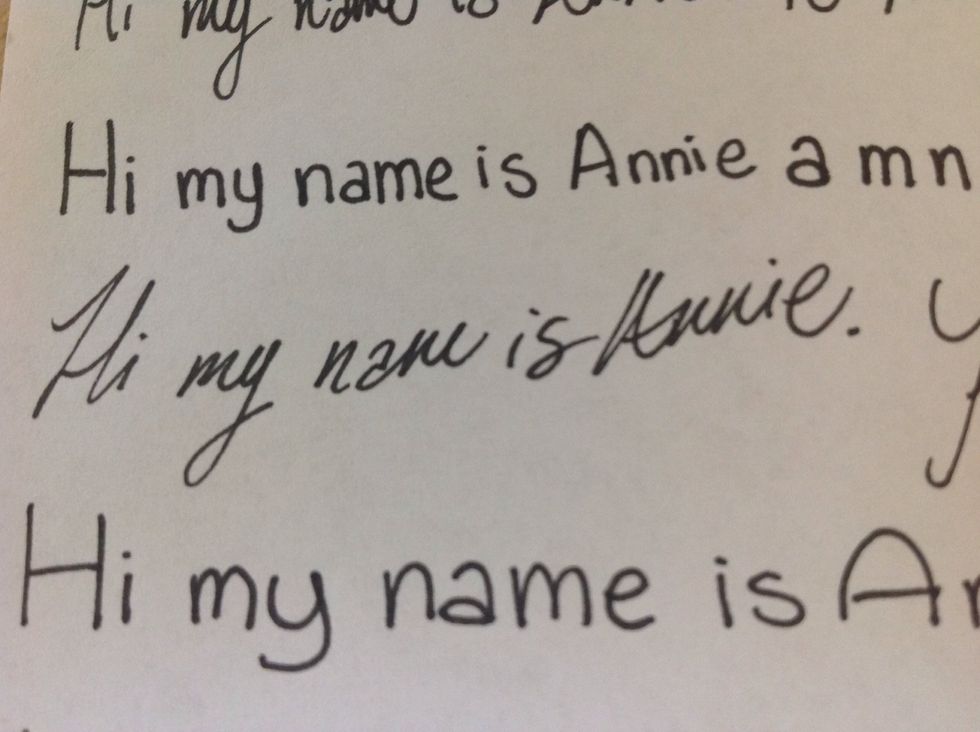 Hi my name is
Hi my name is Annie a m n
Hi my name is Annie.
Hi my name is